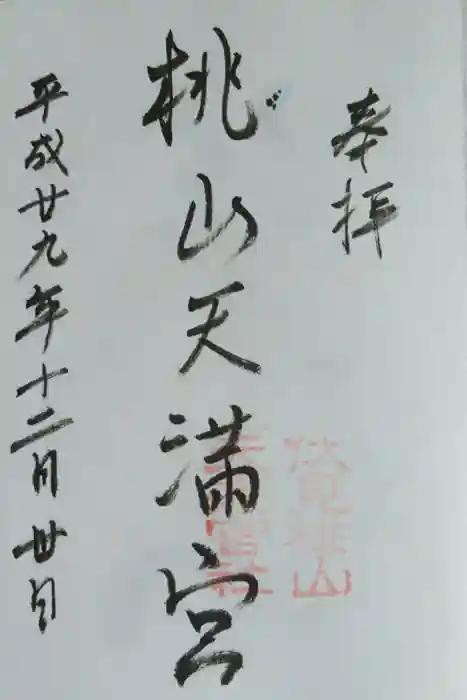 奉拝
桃山天満宮
平成廿九年十二月廿日
伏見桃山